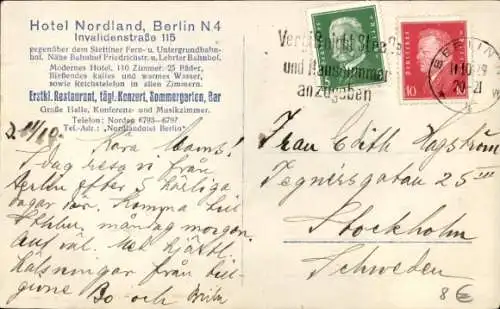 Hotel Nordland, Berlin N4
Invalidenstraße 115
gegenüber dem Stettiner Fern- u. Untergrundbahn-
hof. Nähe Bahnhof Friedrichstr. u. Lehrter Bahnhof.
Modernes Hotel, 110 Zimmer, 25 Bäder,
fließendes kaltes und warmes Wasser,
sowie Reichstelefon in allen Zimmern.
Erstkl. Restaurant, tägl. Konzert, Sommergarten, Bar
Große Halle, Konferenz- und Musikzimmer.
Telefon: Norden 6793-6797
Tel.-Adr.: „Nordlandotel Berlin"
Vergiß nicht Straße
und Hausnummer
anzugeben
BERLIN
11.10.29
10
10
d. 11/10.
Kära Mams!
Idag resa vi från
Berlin efter 5 härliga
dagar här. Komma till
Sthlm måndag morgon.
Med hjärtl.
hälsningar från
Bo och Brita
Frau Edith Hagström
Tegnérsgatan 25 III
Stockholm
Schweden
8 €